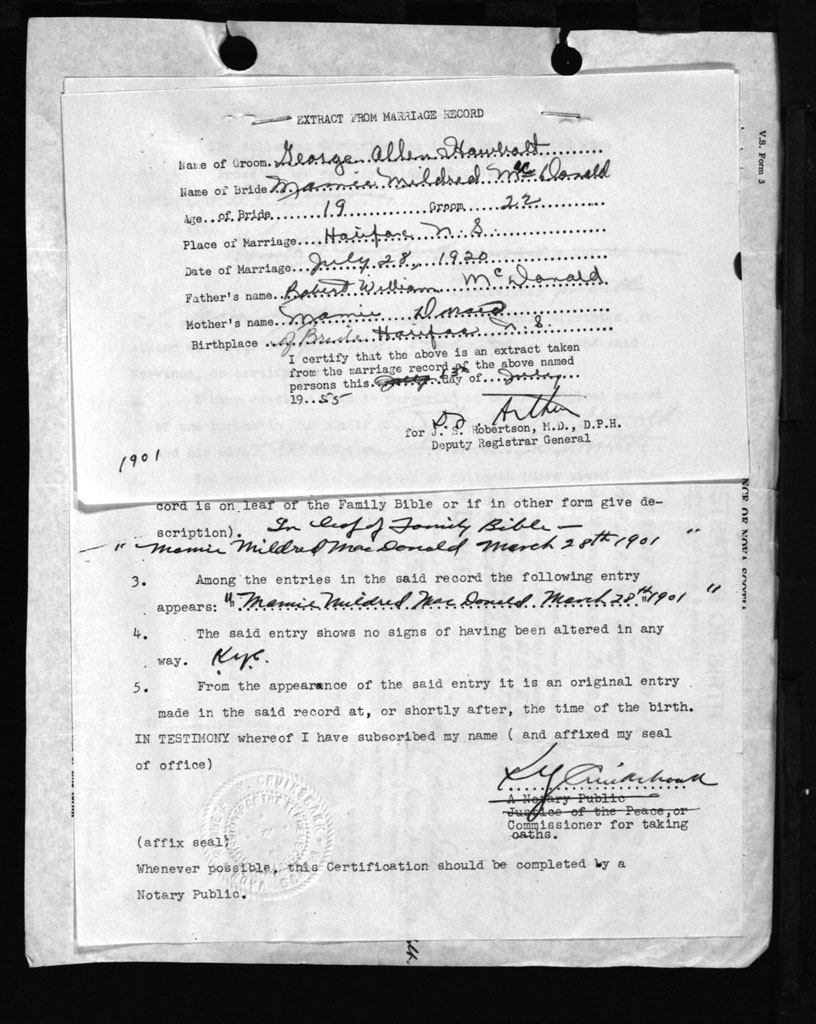 EXTRACT FROM MARRIAGE RECORD
Name of Groom. George Allen
Name of Bride Mamie Mildred McDonald
Age of Bride 19 Groom 22
Place of Marriage Halifax N. S.
Date of Marriage July 28, 1920
Father's name Robert William McDonald
Mother's name Mamie
Birthplace of Bride Halifax N. S.
I certify that the above is an extract taken
from the marriage record of the above named
persons this 13th day of
19 55
Arthur
for J. S. Robertson, M.D., D.P.H.
Deputy Registrar General
1901
V.S. Form 3
NCE OF NOVA SCOTIA
cord is on leaf of the Family Bible or if in other form give de-
scription). In leaf of Family Bible —
— " Mamie Mildred MacDonald March 28th 1901 "
3. Among the entries in the said record the following entry
appears: " Mamie Mildred MacDonald March 28th 1901 "
4. The said entry shows no signs of having been altered in any
way.
5. From the appearance of the said entry it is an original entry
made in the said record at, or shortly after, the time of the birth.
IN TESTIMONY whereof I have subscribed my name ( and affixed my seal
of office)
A Notary Public
Justice of the Peace, or
Commissioner for taking
oaths.
(affix seal)
Whenever possible, this Certification should be completed by a
Notary Public.